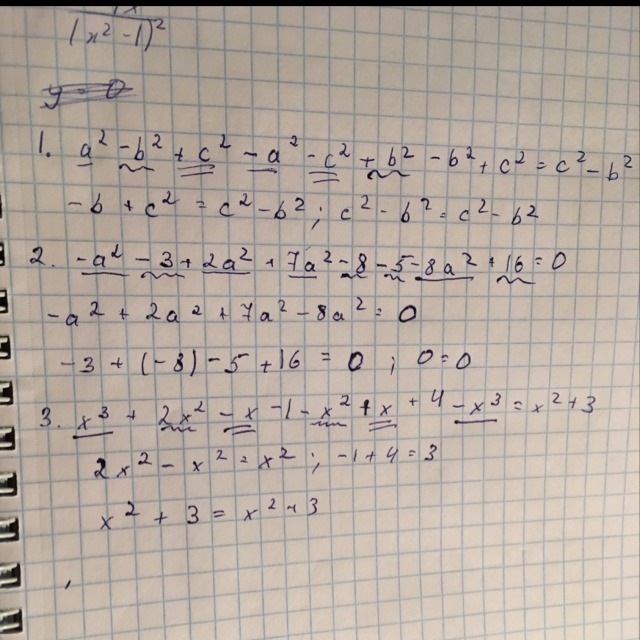 (x² - 1)²
y = 0
1. a² - b² + c² - a² - c² + b² - b² + c² = c² - b²
- b + c² = c² - b² ; c² - b² = c² - b²
2. - a² - 3 + 2a² + 7a² - 8 - 5 - 8a² + 16 = 0
- a² + 2a² + 7a² - 8a² = 0
- 3 + (-8) - 5 + 16 = 0 ; 0 = 0
3. x³ + 2x² - x - 1 - x² + x + 4 - x³ = x² + 3
2x² - x² = x² ; -1 + 4 = 3
x² + 3 = x² + 3